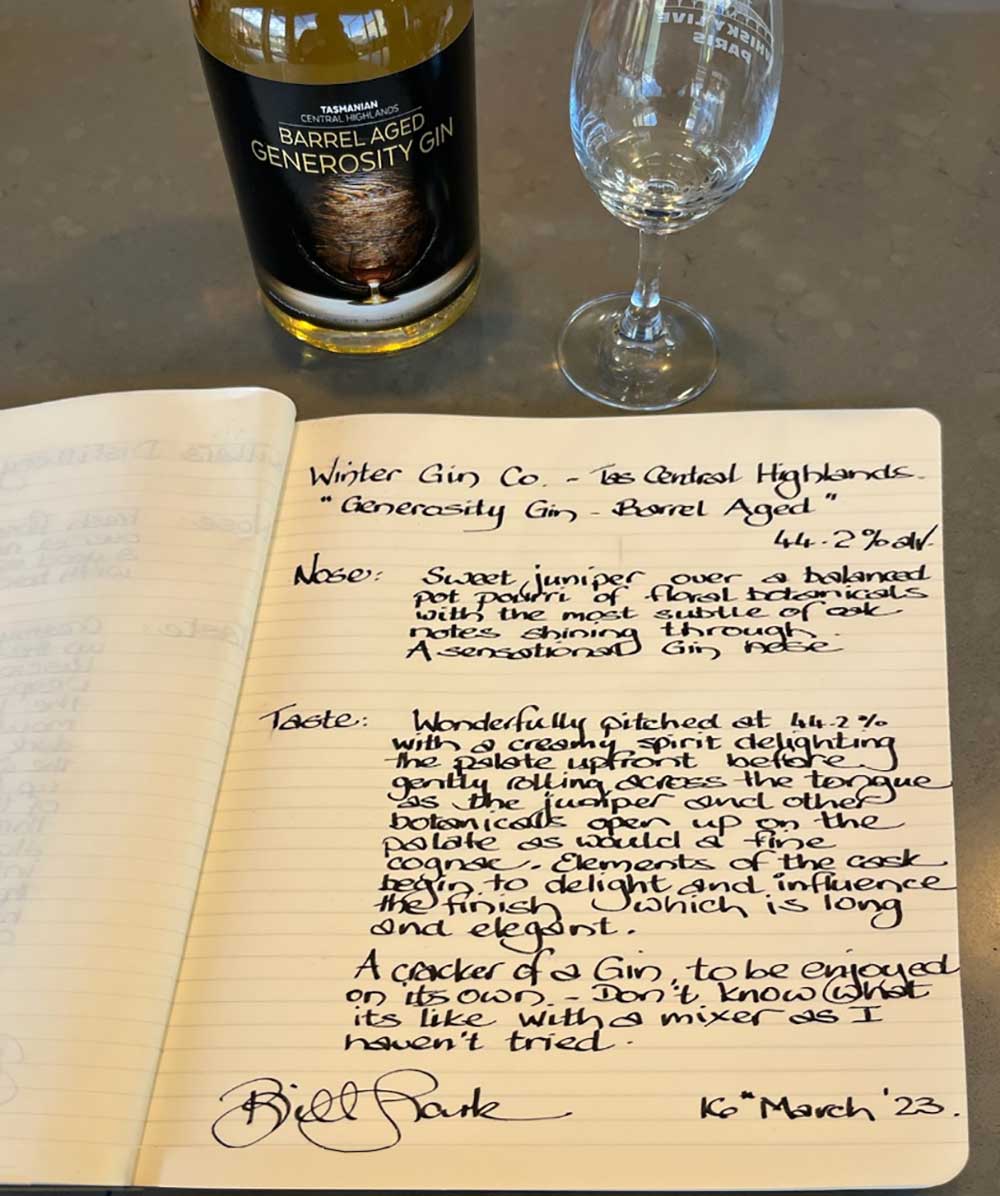 TASMANIAN
CENTRAL HIGHLANDS
BARREL AGED
GENEROSITY GIN
WHISKY LIVE
PARIS
Winter Gin Co. - Tas Central Highlands.
"Generosity Gin - Barrel Aged"
44.2% alv.
Nose: Sweet juniper over a balanced
pot pourri of floral botanicals
with the most subtle of oak
notes shining through.
A sensational Gin nose
Taste: Wonderfully pitched at 44.2%
with a creamy spirit delighting
the palate upfront before
gently rolling across the tongue
as the juniper and other
botanicals open up on the
palate as would a fine
cognac. Elements of the cask
begin to delight and influence
the finish which is long
and elegant.
A cracker of a Gin, to be enjoyed
on its own - Don't know what
its like with a mixer as I
haven't tried.
Bill Lark
March '23.